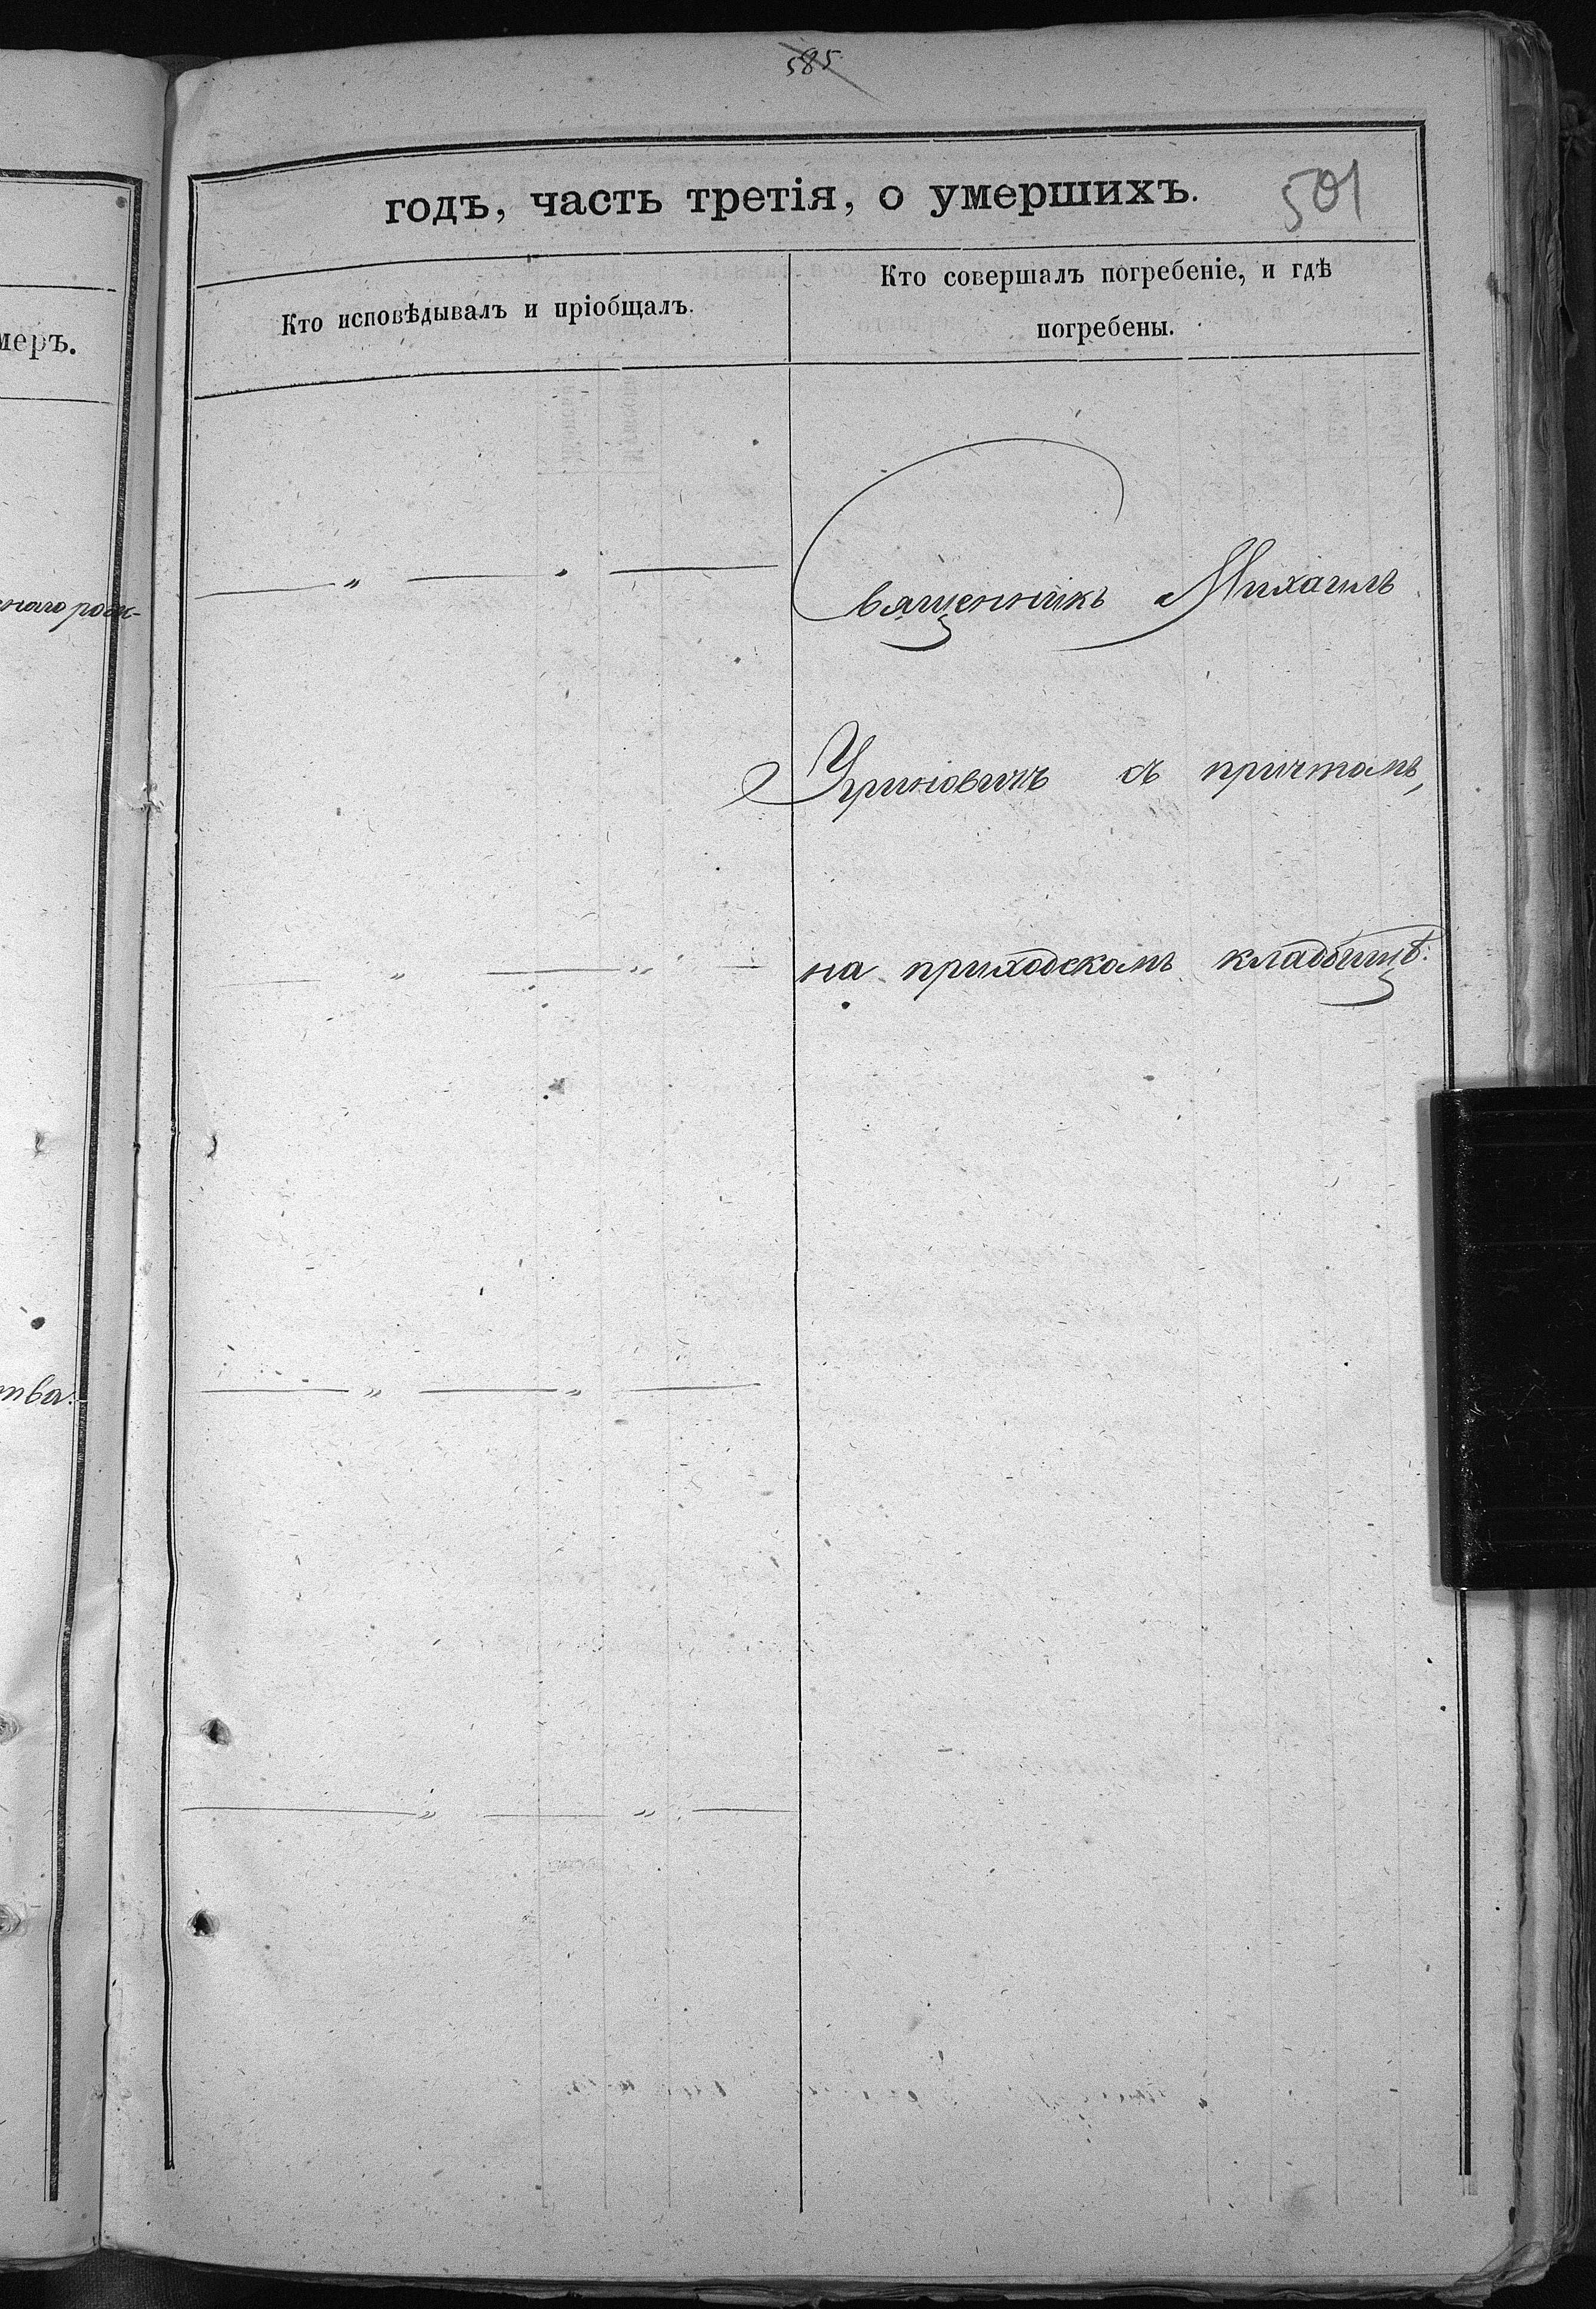 585
годъ, часть третія, о умершихъ.
501
Кто исповѣдывалъ и пріобщалъ.
Кто совершалъ погребеніе, и гдѣ
погребены.
меръ.
Священникъ Михаилъ
Угриновичъ съ причтомъ,
на приходскомъ кладбищѣ.